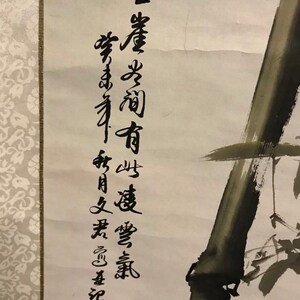 崖谷間有此凌雲氣
癸未年秋月文君寫並記